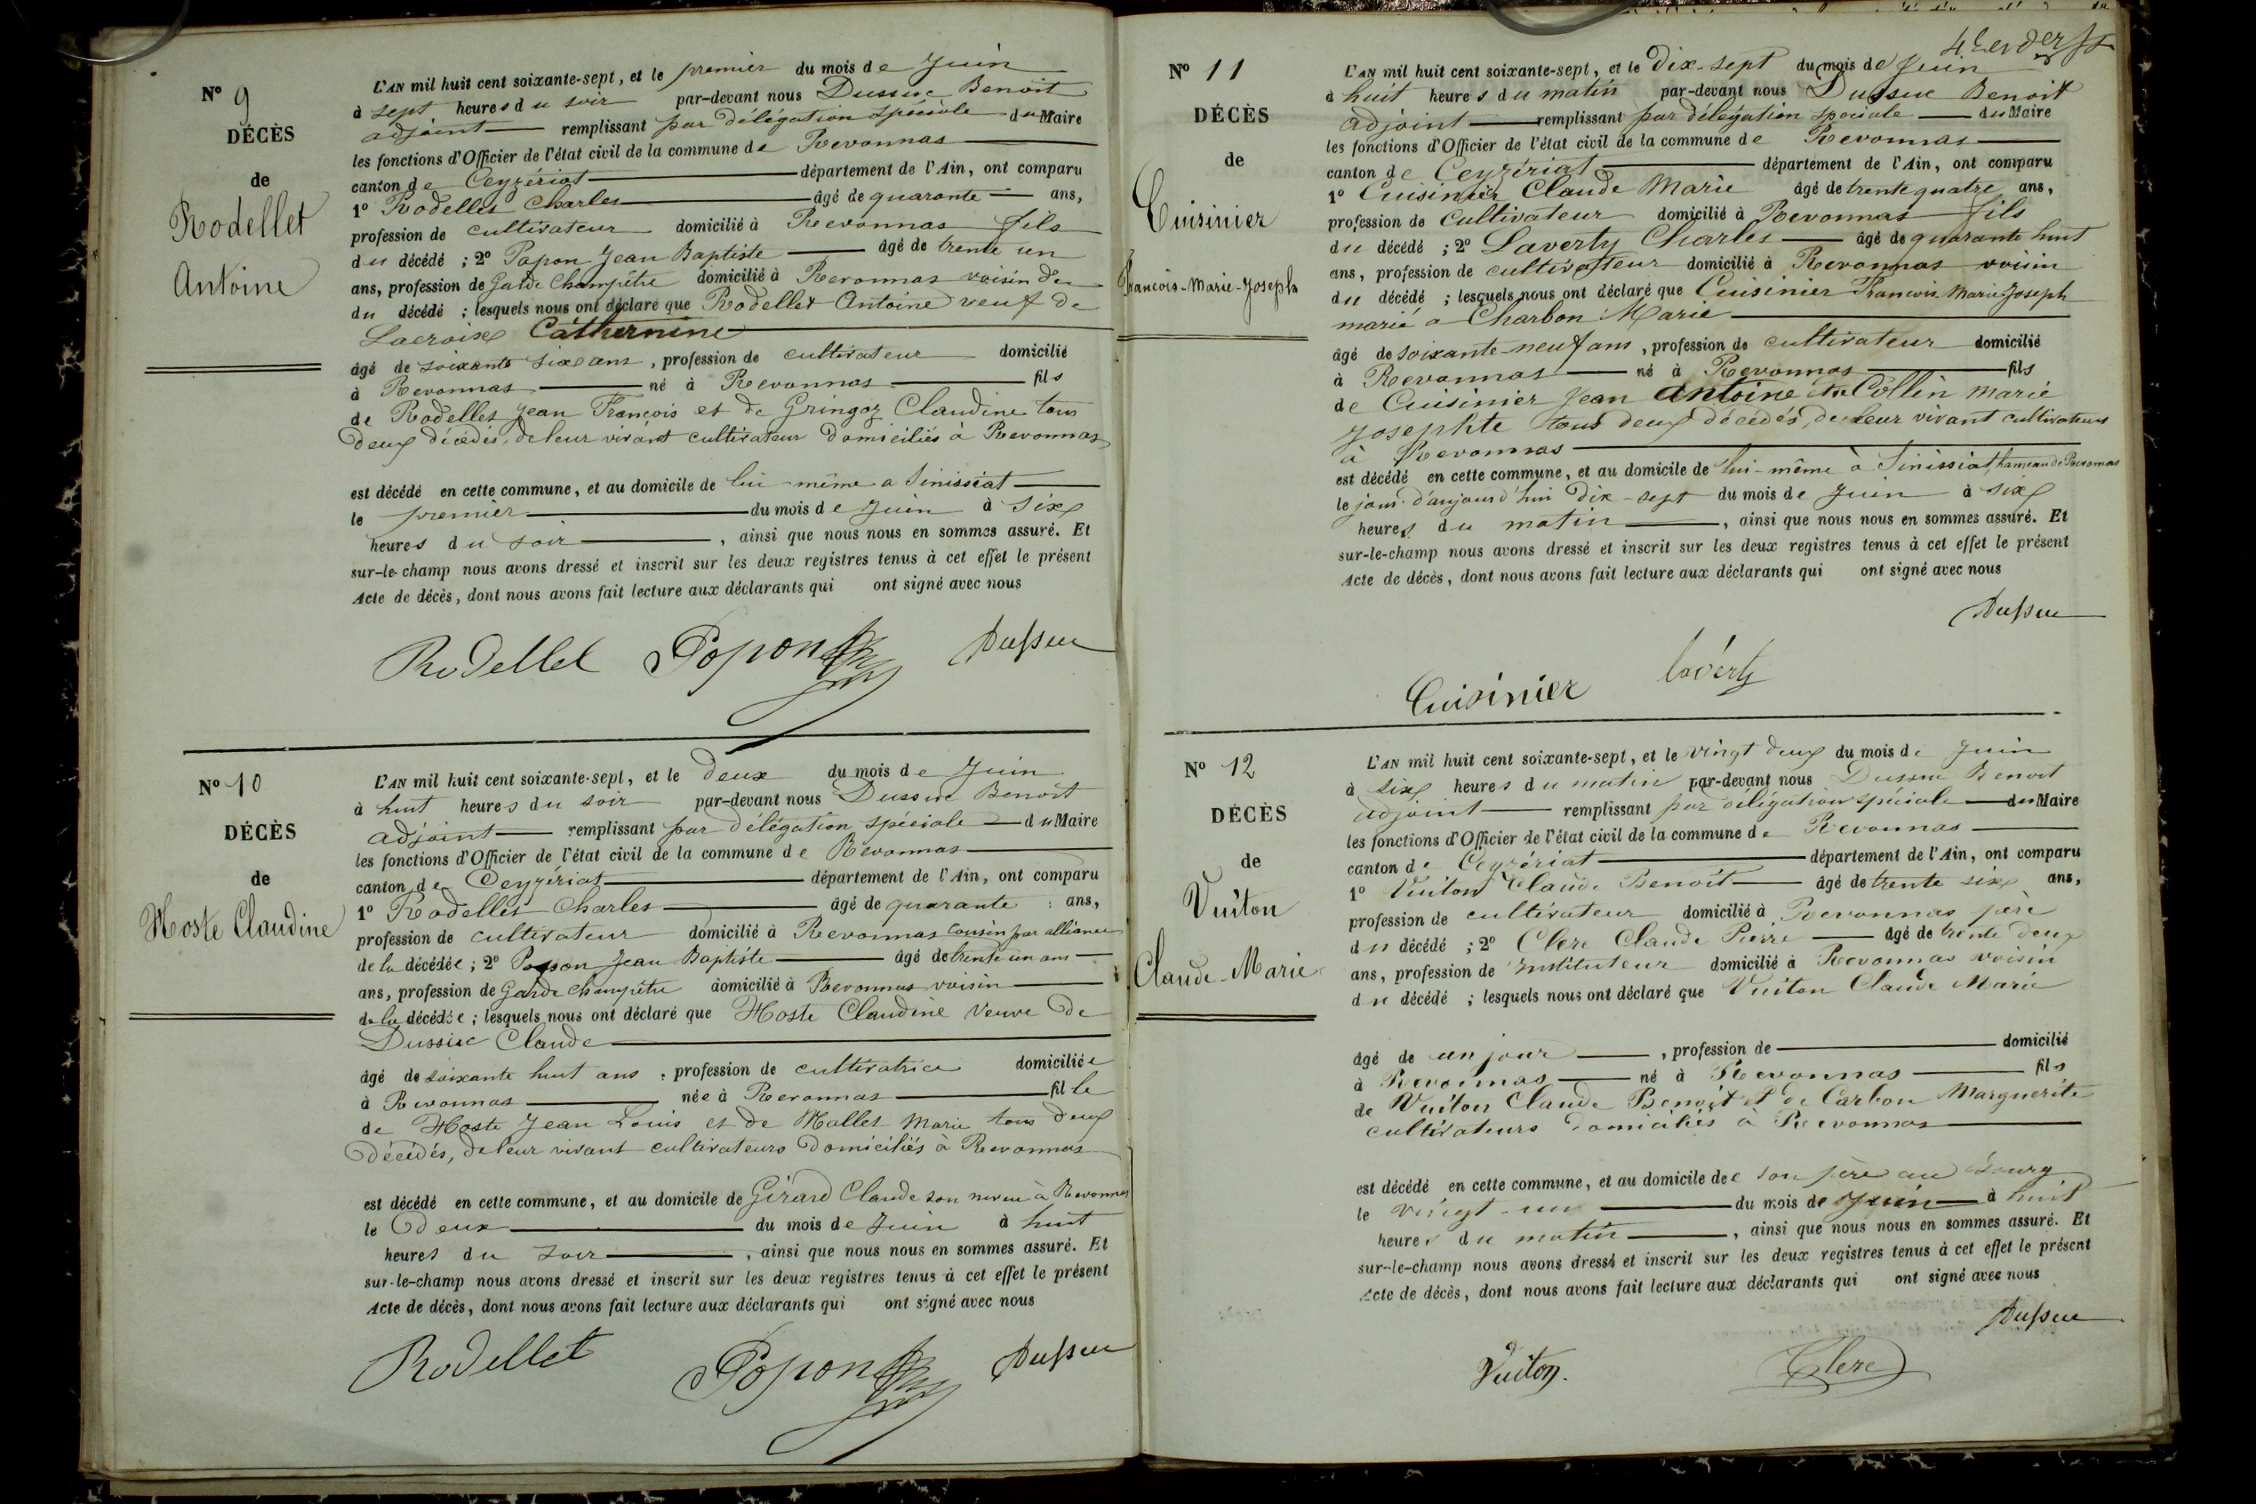 N° 9
DÉCÈS
de
Rodellet
Antoine
L'AN mil huit cent soixante-sept, et le premier du mois de Juin
à sept heures du soir par-devant nous Dussuc Benoit
adjoint remplissant par délégation spéciale du Maire
les fonctions d'Officier de l'état civil de la commune de Revonnas
canton de Ceyzériat département de l'Ain, ont comparu
1° Rodellet Charles âgé de quarante ans,
profession de cultivateur domicilié à Revonnas fils
du décédé ; 2° Popon Jean Baptiste âgé de trente un
ans, profession de Garde Champêtre domicilié à Revonnas voisin du
du décédé ; lesquels nous ont déclaré que Rodellet Antoine veuf de
Lacroix Catherine
âgé de soixante six ans, profession de cultivateur domicilié
à Revonnas né à Revonnas fils
de Rodellet Jean François et de Gringoz Claudine tous
deux décédés, de leur vivant cultivateur domiciliés à Revonnas
est décédé en cette commune, et au domicile de lui-même a Sinissiat
le premier du mois de Juin à six
heures du soir, ainsi que nous nous en sommes assuré. Et
sur-le-champ nous avons dressé et inscrit sur les deux registres tenus à cet effet le présent
Acte de décès, dont nous avons fait lecture aux déclarants qui ont signé avec nous
Rodellet Popon Dussuc
N° 10
DÉCÈS
de
Hoste Claudine
L'AN mil huit cent soixante-sept, et le deux du mois de Juin
à huit heures du soir par-devant nous Dussuc Benoit
adjoint remplissant par délégation spéciale du Maire
les fonctions d'Officier de l'état civil de la commune de Revonnas
canton de Ceyzériat département de l'Ain, ont comparu
1° Rodellet Charles âgé de quarante ans,
profession de cultivateur domicilié à Revonnas cousin par alliance
de la décédée ; 2° Popon Jean Baptiste âgé de trente un ans
ans, profession de Garde champêtre domicilié à Revonnas voisin
de la décédée ; lesquels nous ont déclaré que Hoste Claudine veuve de
Dussuc Claude
âgé de soixante huit ans, profession de cultivatrice domiciliée
à Revonnas née à Revonnas fille
de Hoste Jean Louis et de Mallet Marie tous deux
décédés, de leur vivant cultivateurs domiciliés à Revonnas
est décédé en cette commune, et au domicile de Girard Claude son neveu à Revonnas
le deux du mois de Juin à huit
heures du soir, ainsi que nous nous en sommes assuré. Et
sur-le-champ nous avons dressé et inscrit sur les deux registres tenus à cet effet le présent
Acte de décès, dont nous avons fait lecture aux déclarants qui ont signé avec nous
Rodellet Popon Dussuc
4e et der
N° 11
DÉCÈS
de
Cuisinier
François-Marie-Joseph
L'AN mil huit cent soixante-sept, et le dix-sept du mois de Juin
à huit heures du matin par-devant nous Dussuc Benoit
adjoint remplissant par délégation spéciale du Maire
les fonctions d'Officier de l'état civil de la commune de Revonnas
canton de Ceyzériat département de l'Ain, ont comparu
1° Cuisinier Claude Marie âgé de trente quatre ans,
profession de cultivateur domicilié à Revonnas fils
du décédé ; 2° Laverty Charles âgé de quarante huit
ans, profession de cultivateur domicilié à Revonnas voisin
du décédé ; lesquels nous ont déclaré que Cuisinier François Marie Joseph
marié a Charbon Marie
âgé de soixante-neuf ans, profession de cultivateur domicilié
à Revonnas né à Revonnas fils
de Cuisinier Jean Antoine de Collin Marie
Josephte tous deux décédés, de leur vivant cultivateurs
à Revonnas
est décédé en cette commune, et au domicile de lui-même à Sinissiat, hameau de Revonnas
le jour d'aujourd'hui dix-sept du mois de Juin à six
heures du matin, ainsi que nous nous en sommes assuré. Et
sur-le-champ nous avons dressé et inscrit sur les deux registres tenus à cet effet le présent
Acte de décès, dont nous avons fait lecture aux déclarants qui ont signé avec nous
Dussuc
Cuisinier laverty
N° 12
DÉCÈS
de
Vuiton
Claude-Marie
L'AN mil huit cent soixante-sept, et le vingt deux du mois de Juin
à six heures du matin par-devant nous Dussuc Benoit
adjoint remplissant par délégation spéciale du Maire
les fonctions d'Officier de l'état civil de la commune de Revonnas
canton de Ceyzériat département de l'Ain, ont comparu
1° Vuiton Claude Benoit âgé de trente six ans,
profession de cultivateur domicilié à Revonnas père
du décédé ; 2° Clerc Claude Pierre âgé de trente deux
ans, profession de instituteur domicilié à Revonnas voisin
du décédé ; lesquels nous ont déclaré que Vuiton Claude Marie
âgé de un jour, profession de domicilié
à Revonnas né à Revonnas fils
de Vuiton Claude Benoit et de Carbon Marguerite
cultivateurs domiciliés à Revonnas
est décédé en cette commune, et au domicile de son père au Bourg
le vingt-un du mois de Juin à huit
heures du matin, ainsi que nous nous en sommes assuré. Et
sur-le-champ nous avons dressé et inscrit sur les deux registres tenus à cet effet le présent
Acte de décès, dont nous avons fait lecture aux déclarants qui ont signé avec nous
Dussuc
Vuiton. Clerc